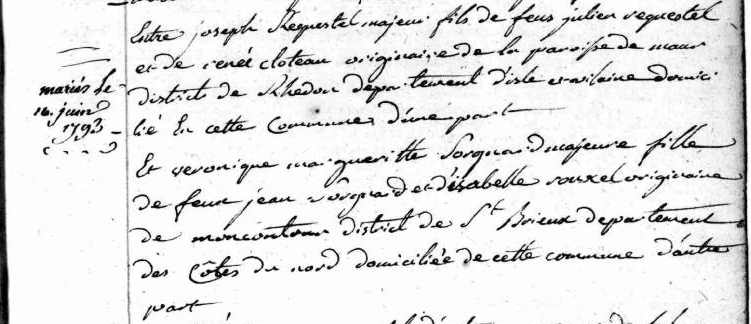 Entre joseph Requestel majeur fils de feus julien requestel
et de renée cloteau originaire de la paroisse de maur
district de Rhedon departement d'isle et vilaine domici
lié En cette Commune d'une part
mariés le
16. juin
1793
Et veronique margueritte Sorgnard majeure fille
de feux jean Sorgnard et d'isabelle rouxel originaire
de moncontour district de St Brieux departement
des Côtes du nord domiciliée de cette commune d'autre
part